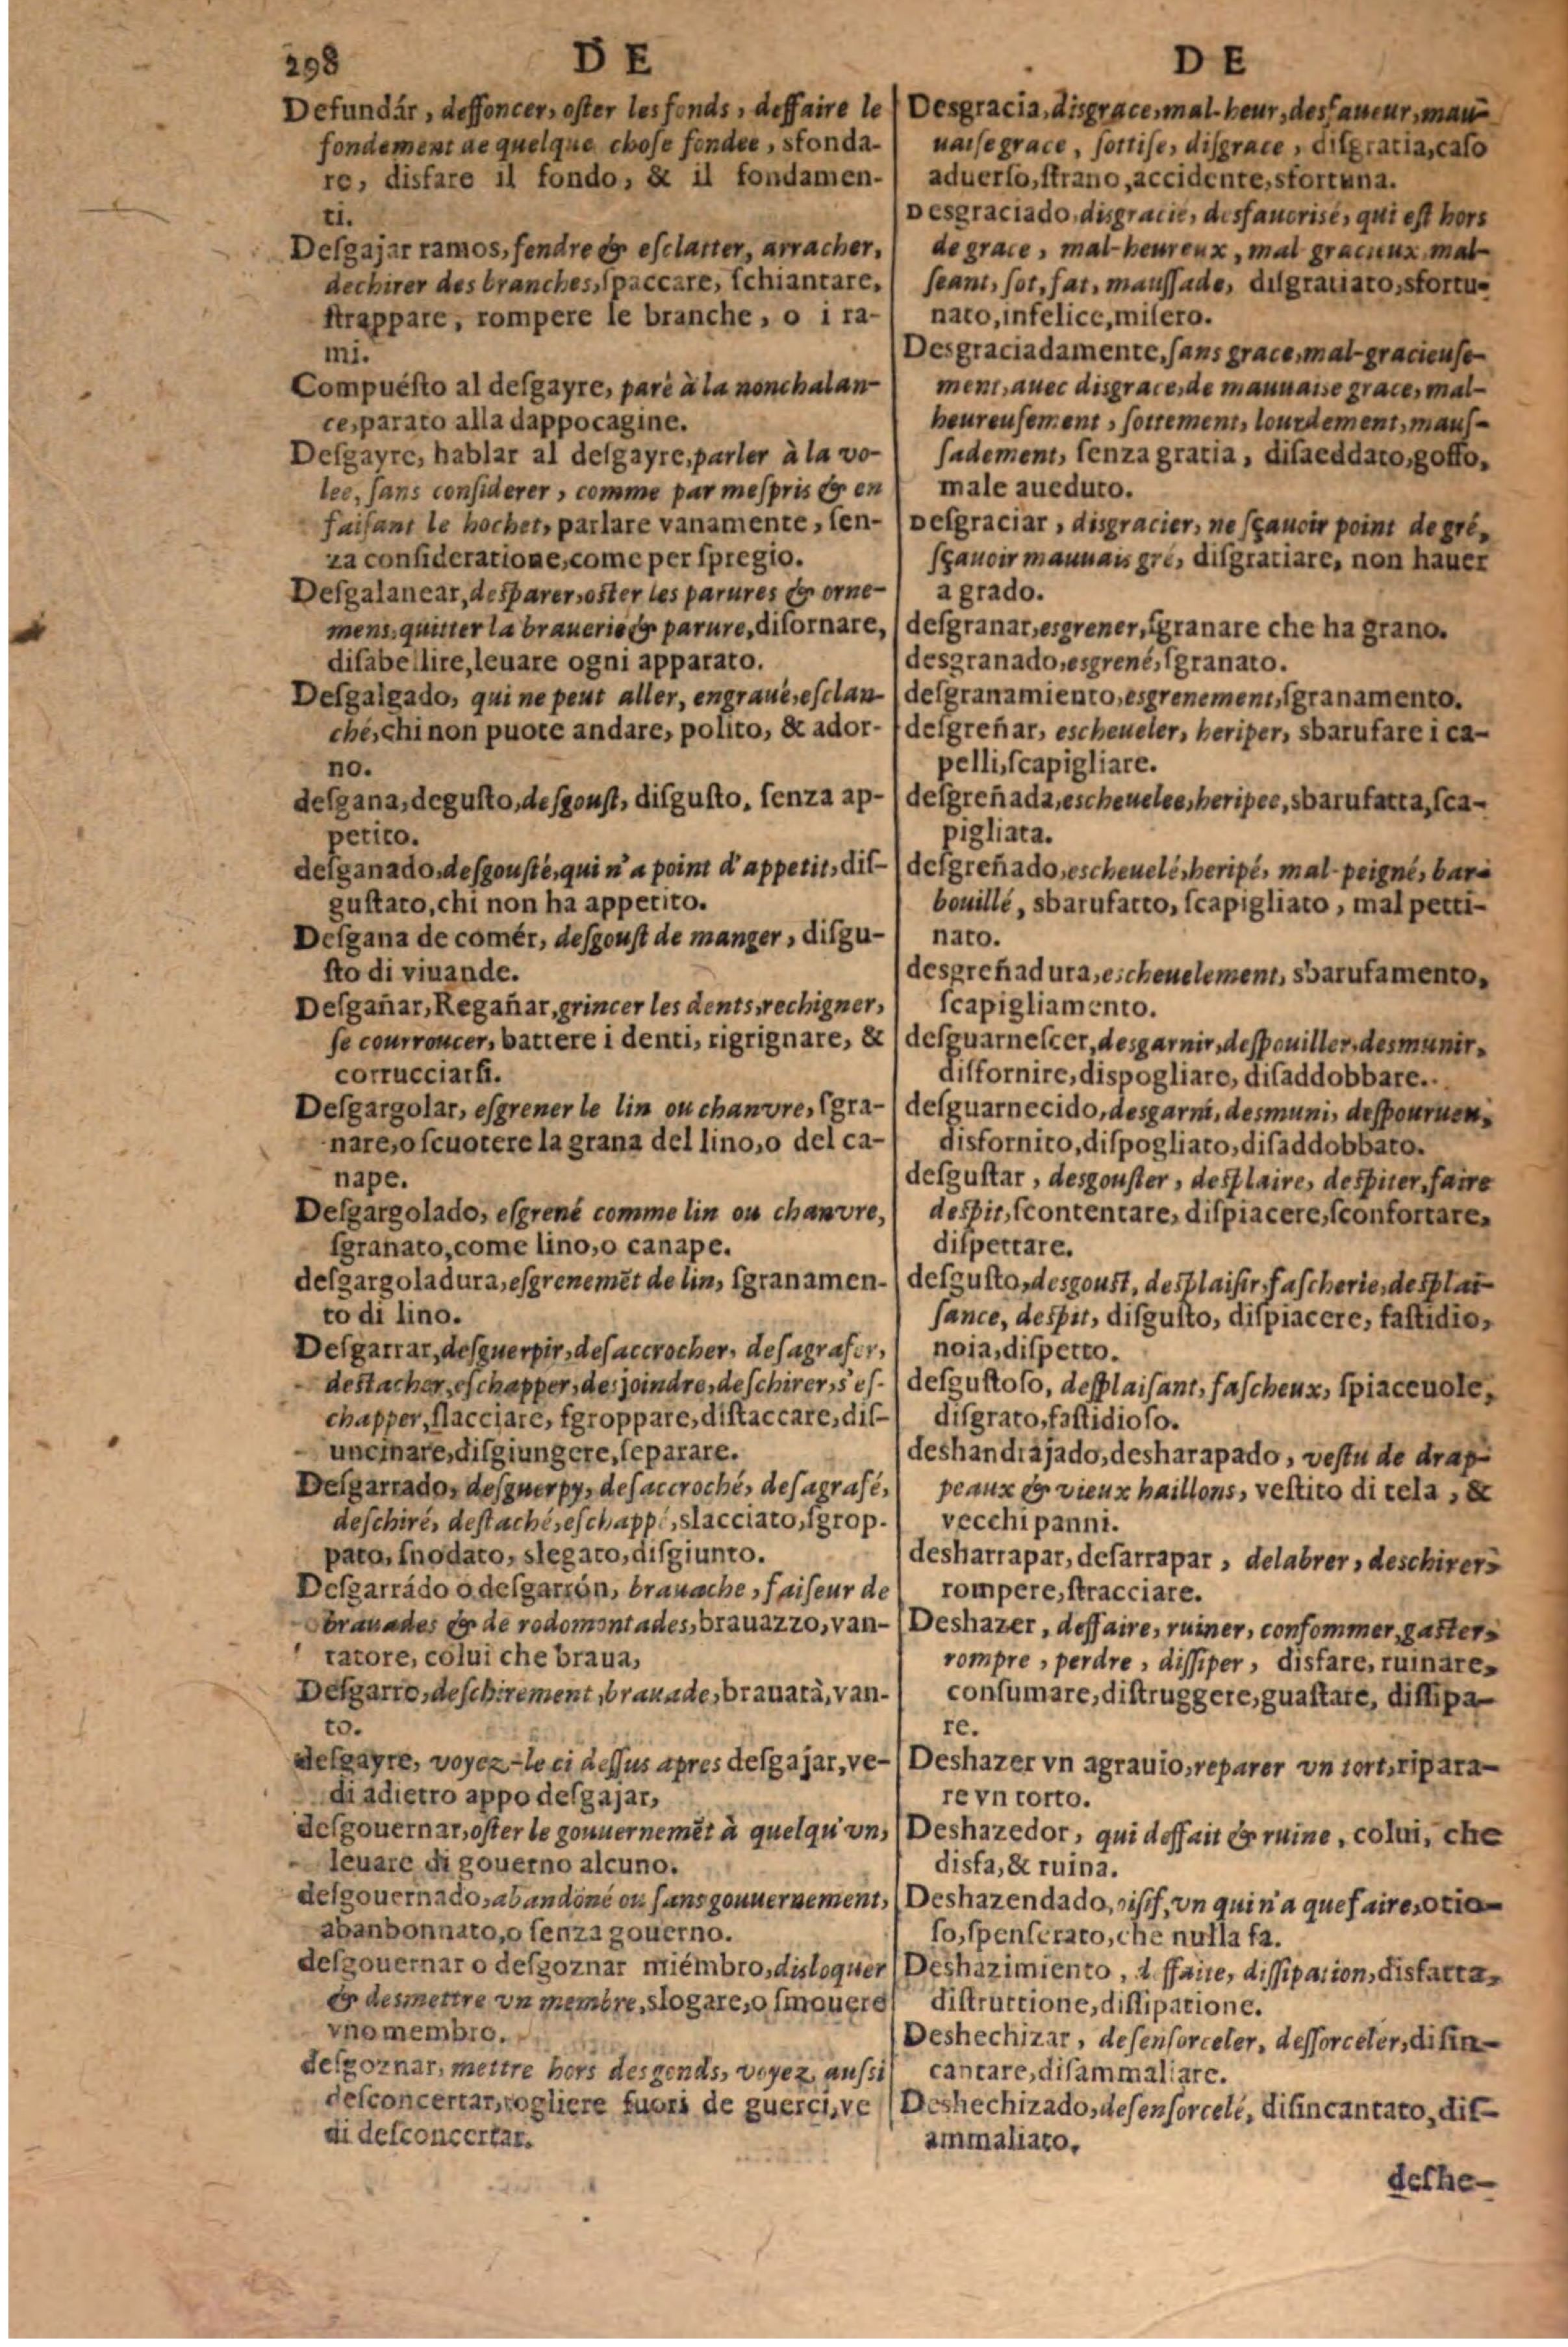 298 DE DE
Defundár, deffoncer, oſter les fonds, deffaire le
fondement de quelque choſe fondee, sfonda-
re, disfare il fondo, & il fondamen-
ti.
Deſgajar ramos, fendre & eſclatter, arracher,
dechirer des branches, ſpaccare, ſchiantare,
ſtrappare, rompere le branche, o i ra-
mi.
Compuéſto al deſgayre, paré à la nonchalan-
ce, parato alla dappocagine.
Deſgayre, hablar al deſgayre, parler à la vo-
lee, ſans conſiderer, comme par meſpris & en
faiſant le hochet, parlare vanamente, ſen-
za conſideratione, come per ſpregio.
Deſgalanear, deſparer, oſter les parures & orne-
mens, quitter la brauerie & parure, diſornare,
diſabellire, leuare ogni apparato.
Deſgalgado, qui ne peut aller, engraué, eſclan-
ché, chi non puote andare, polito, & ador-
no.
deſgana, deguſto, deſgouſt, diſguſto, ſenza ap-
petito.
deſganado, deſgouſté, qui n'a point d'appetit, diſ-
guſtato, chi non ha appetito.
Deſgana de comér, deſgouſt de manger, diſgu-
ſto di viuande.
Deſgañar, Regañar, grincer les dents, rechigner,
ſe courroucer, battere i denti, rigrignare, &
corrucciarſi.
Deſgargolar, eſgrener le lin ou chanvre, ſgra-
nare, o ſcuotere la grana del lino, o del ca-
nape.
Deſgargolado, eſgrené comme lin ou chanvre,
ſgranato, come lino, o canape.
deſgargoladura, eſgrenemẽt de lin, ſgranamen-
to di lino.
Deſgarrar, deſguerpir, deſaccrocher, deſagrafer,
deſtacher, eſchapper, desjoindre, deſchirer, s'eſ-
chapper, ſlacciare, ſgroppare, diſtaccare, diſ-
uncinare, diſgiungere, ſeparare.
Deſgarrado, deſguerpy, deſaccroché, deſagrafé,
deſchiré, deſtaché, eſchappé, slacciato, ſgrop-
pato, ſnodato, slegato, diſgiunto.
Deſgarrádo o deſgarrón, brauache, faiſeur de
brauades & de rodomontades, brauazzo, van-
tatore, colui che braua,
Deſgarro, deſchirement, brauade, brauatà, van-
to.
deſgayre, voyez-le ci deſſus apres deſgajar, ve-
di adietro appo deſgajar,
deſgouernar, oſter le gouuernemẽt à quelqu'vn,
leuare di gouerno alcuno.
deſgouernado, abandoné ou ſans gouuernement,
abanbonnato, o ſenza gouerno.
deſgouernar o deſgoznar miémbro, disloquer
& desmettre vn membre, slogare, o ſmouere
vno membro.
deſgoznar, mettre hors des gonds, voyez auſſi
deſconcertar, togliere fuori de guerci, ve
di deſconcertar.
Desgracia, disgrace, mal-heur, desfaueur, mau-
uaiſe grace, ſottiſe, diſgrace, diſgratia, caſo
aduerſo, ſtrano, accidente, sfortuna.
Desgraciado, disgracié, desfauorisé, qui eſt hors
de grace, mal-heureux, mal gracieux, mal-
ſeant, ſot, fat, mauſſade, diſgratiato, sfortu-
nato, infelice, miſero.
Desgraciadamente, ſans grace, mal-gracieuſe-
ment, auec disgrace, de mauuaise grace, mal-
heureuſement, ſottement, lourdement, mauſ-
ſadement, ſenza gratia, diſaeddato, goffo,
male aueduto.
Deſgraciar, disgracier, ne ſçauoir point de gré,
ſçauoir mauuais gré, diſgratiare, non hauer
a grado.
deſgranar, esgrener, ſgranare che ha grano.
desgranado, esgrené, ſgranato.
deſgranamiento, esgrenement, ſgranamento.
deſgreñar, escheueler, heriper, sbarufare i ca-
pelli, ſcapigliare.
deſgreñada, escheuelee, heripee, sbarufatta, ſca-
pigliata.
deſgreñado, escheuelé, heripé, mal-peigné, bar-
bouillé, sbarufatto, ſcapigliato, mal petti-
nato.
desgreñadura, escheuelement, sbarufamento,
ſcapigliamento.
deſguarneſcer, desgarnir, deſpouiller, desmunir,
diſfornire, dispogliare, diſaddobbare.
deſguarnecido, desgarni, desmuni, deſpourueu,
disfornito, diſpogliato, diſaddobbato.
deſguſtar, desgouſter, deſplaire, deſpiter, faire
deſpit, ſcontentare, diſpiacere, ſconfortare,
diſpettare.
deſguſto, desgouſt, deſplaiſir, faſcherie, deſplai-
ſance, deſpit, diſguſto, diſpiacere, faſtidio,
noia, diſpetto.
deſguſtoſo, deſplaiſant, faſcheux, ſpiaceuole,
diſgrato, faſtidioſo.
deshandrajado, desharapado, veſtu de drap-
peaux & vieux haillons, veſtito di tela, &
vecchi panni.
desharrapar, deſarrapar, delabrer, deschirer,
rompere, ſtracciare.
Deshazer, deffaire, ruiner, conſommer, gaſter,
rompre, perdre, diſſiper, disfare, ruinare,
conſumare, diſtruggere, guaſtare, diſſipa-
re.
Deshazer vn agrauio, reparer vn tort, ripara-
re vn torto.
Deshazedor, qui deffait & ruine, colui, che
disfa, & ruina.
Deshazendado, oiſif, vn qui n'a que faire, otio-
ſo, ſpenſerato, che nulla fa.
Deshazimiento, deffaite, diſſipation, disfatta,
diſtruttione, diſſipatione.
Deshechizar, deſenſorceler, deſſorceler, diſin-
cantare, diſammaliare.
Deshechizado, deſenſorcelé, diſincantato, diſ-
ammaliato.
deſhe-